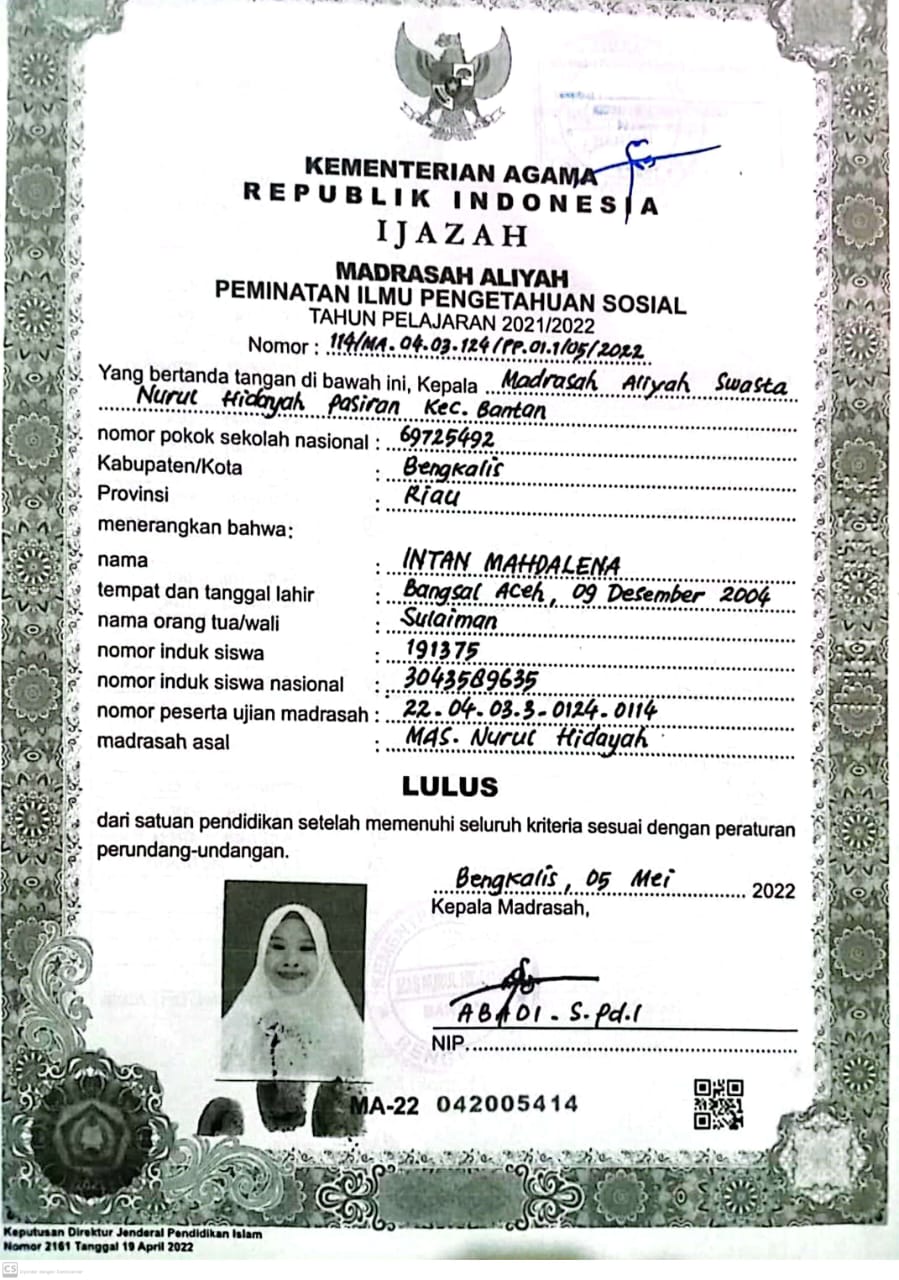 KEMENTERIAN AGAMA
REPUBLIK INDONESIA
IJAZAH
MADRASAH ALIYAH
PEMINATAN ILMU PENGETAHUAN SOSIAL
TAHUN PELAJARAN 2021/2022
Nomor : 114/MA.04.03.124/PP.01.1/05/2022
Yang bertanda tangan di bawah ini, Kepala Madrasah Aliyah Swasta
Nurul Hidayah Pasiran Kec. Bantan
nomor pokok sekolah nasional : 69725492
Kabupaten/Kota : Bengkalis
Provinsi : Riau
menerangkan bahwa:
nama : INTAN MAHDALENA
tempat dan tanggal lahir : Bangsal Aceh, 09 Desember 2004
nama orang tua/wali : Sulaiman
nomor induk siswa : 191375
nomor induk siswa nasional : 3043589635
nomor peserta ujian madrasah : 22-04-03-3-0124-0114
madrasah asal : MAS. Nurul Hidayah
LULUS
dari satuan pendidikan setelah memenuhi seluruh kriteria sesuai dengan peraturan
perundang-undangan.
Bengkalis, 05 Mei 2022
Kepala Madrasah,
ABADI - S.Pd.I
NIP.
MA-22 042005414
Keputusan Direktur Jenderal Pendidikan Islam
Nomor 2161 Tanggal 19 April 2022
CS